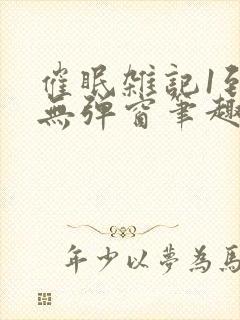 催眠雑記1到
無弹窗筆趣
年少以夢為馬